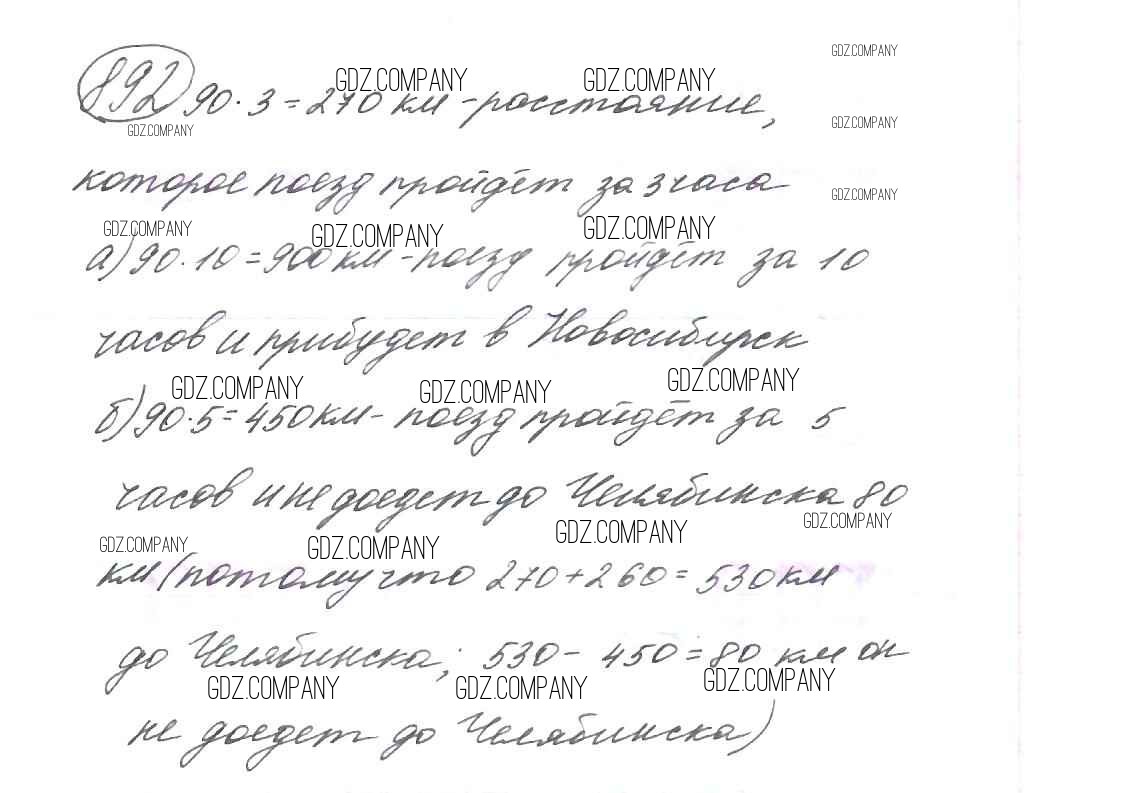 GDZ.COMPANY
GDZ.COMPANY GDZ.COMPANY
892 90·3=270 км -расстояние,
GDZ.COMPANY GDZ.COMPANY
которое поезд пройдёт за 3 часа
GDZ.COMPANY
GDZ.COMPANY GDZ.COMPANY GDZ.COMPANY
а) 90·10=900км -поезд пройдёт за 10
часов и прибудет в Новосибирск
GDZ.COMPANY GDZ.COMPANY GDZ.COMPANY
б) 90·5=450км- поезд пройдёт за 5
часов и не доедет до Челябинска 80
GDZ.COMPANY GDZ.COMPANY GDZ.COMPANY GDZ.COMPANY
км (потому что 270+260=530км
до Челябинска; 530- 450=80 км он
GDZ.COMPANY GDZ.COMPANY GDZ.COMPANY
не доедет до Челябинска)